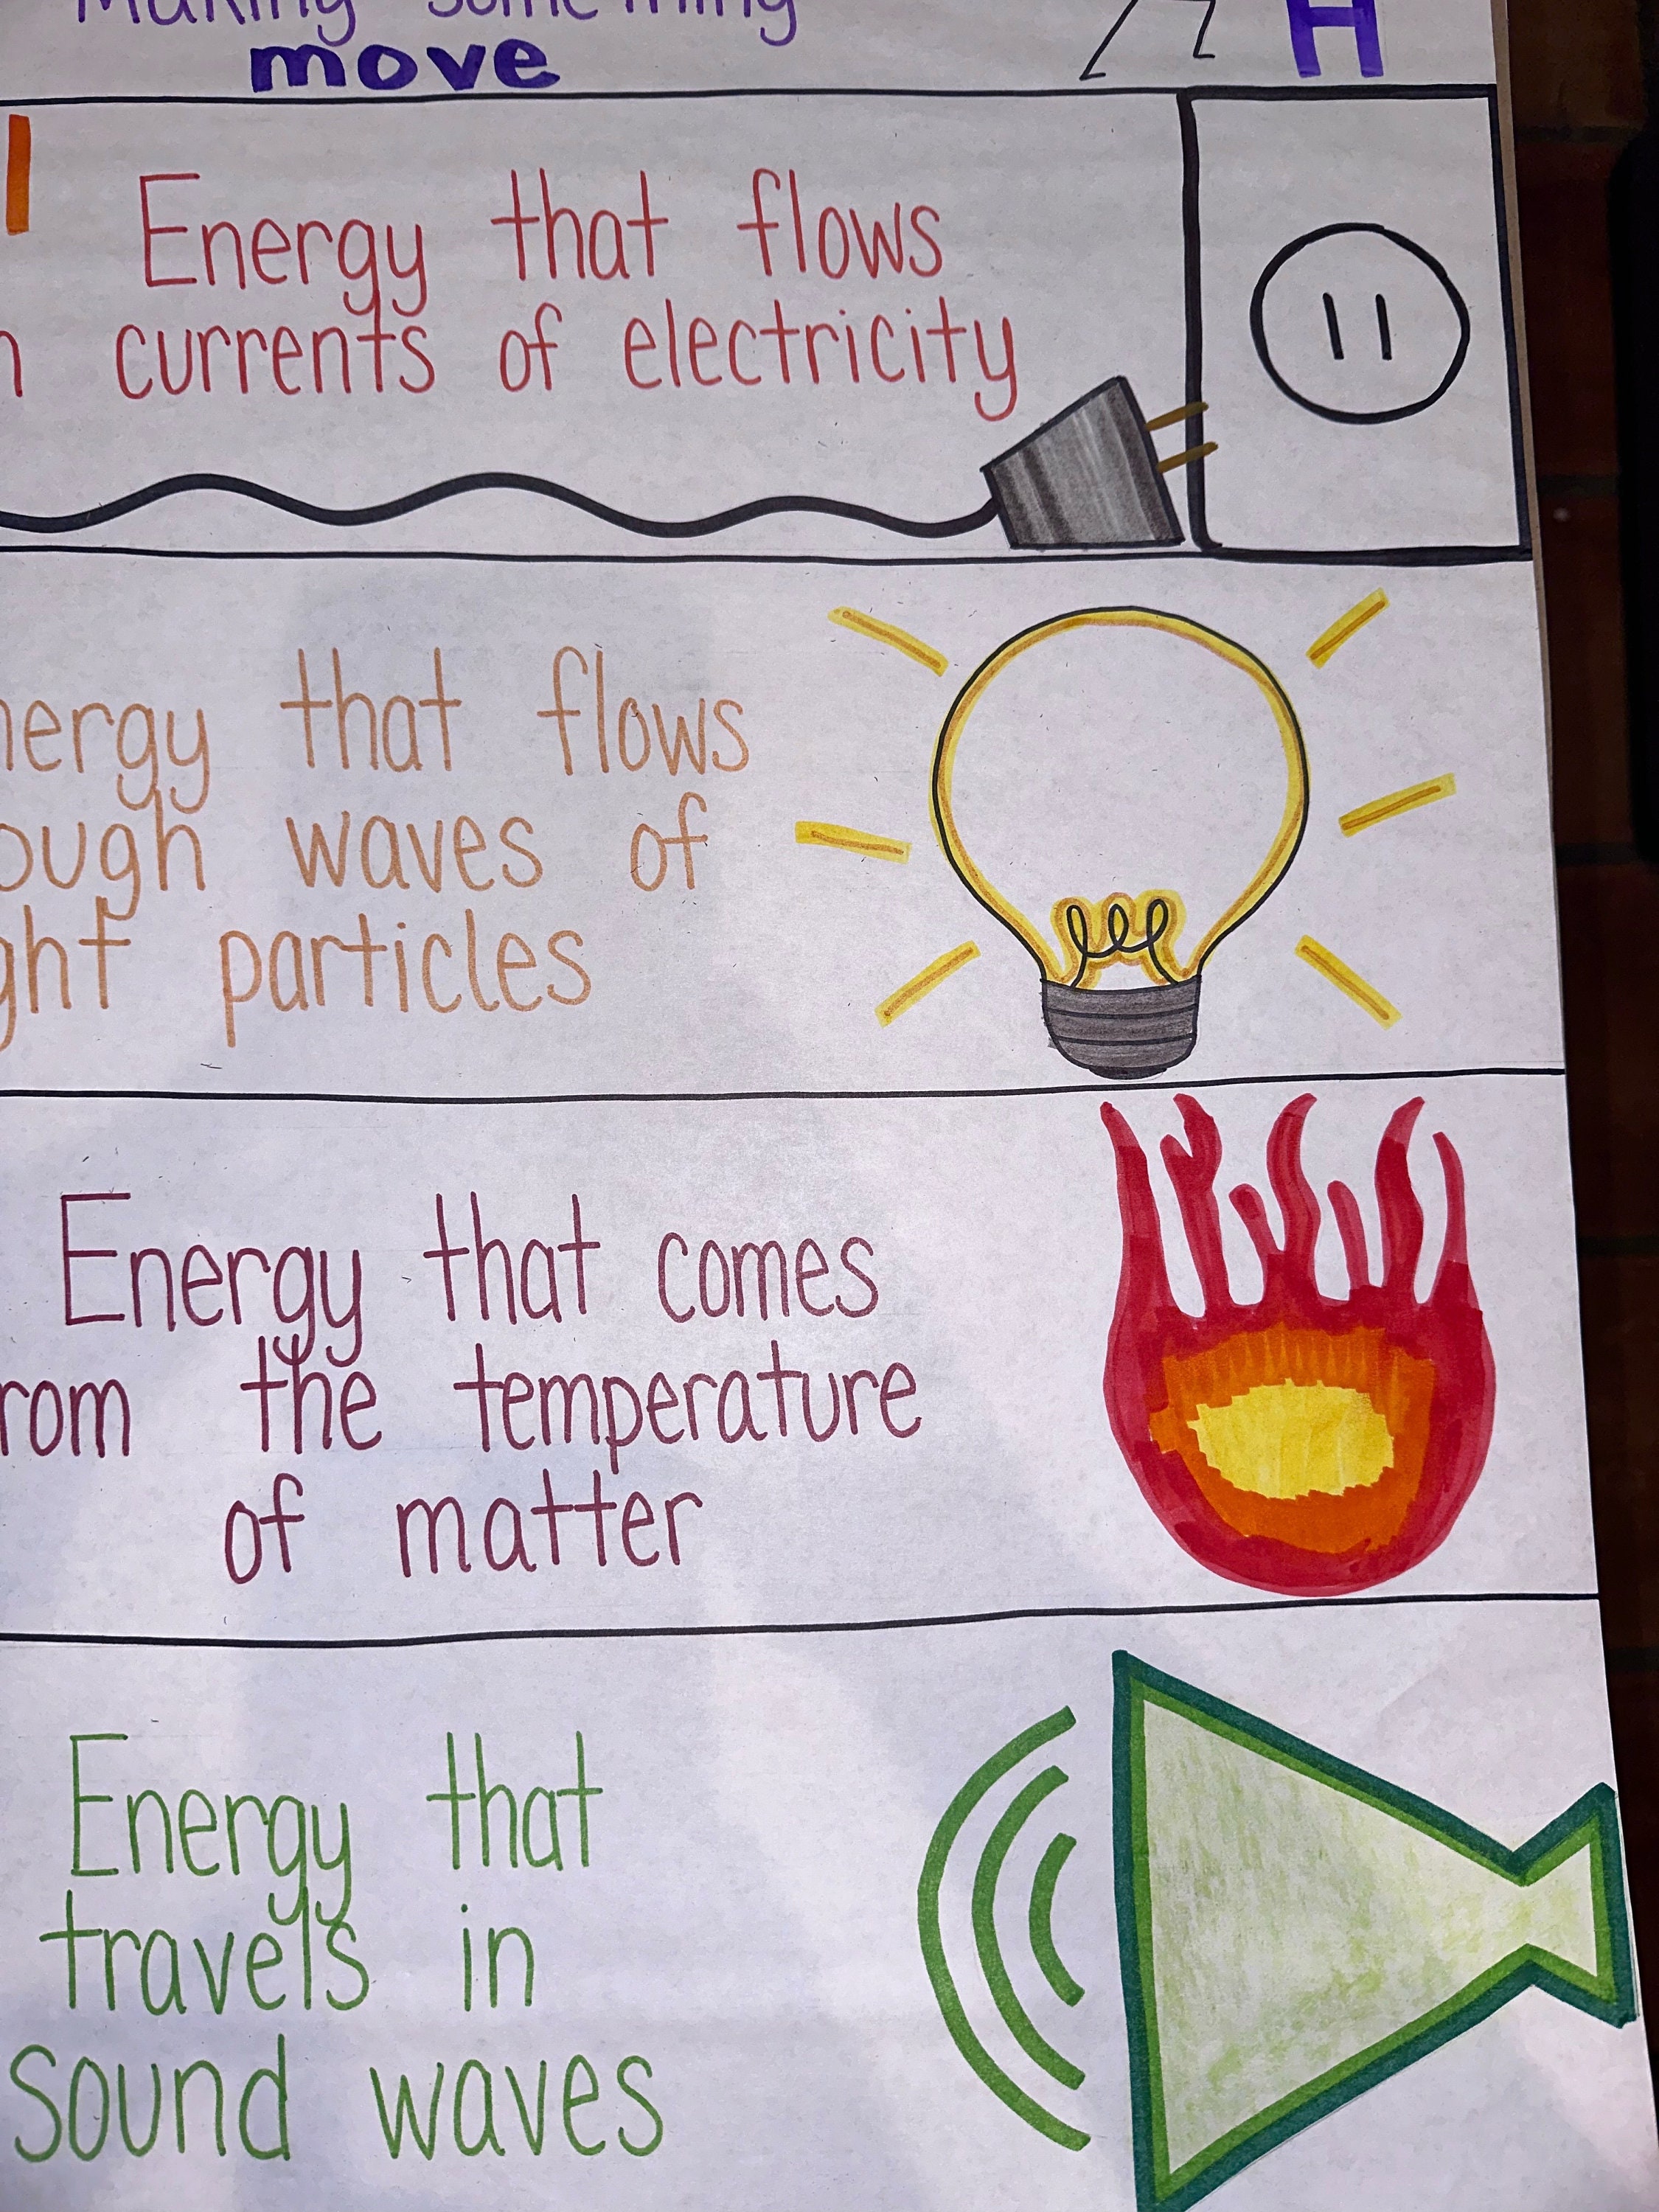 Making something
move
H
Energy that flows
currents of electricity
that flows
waves of
particles
Energy that comes
the temperature
of matter
Energy that
travels in
sound waves